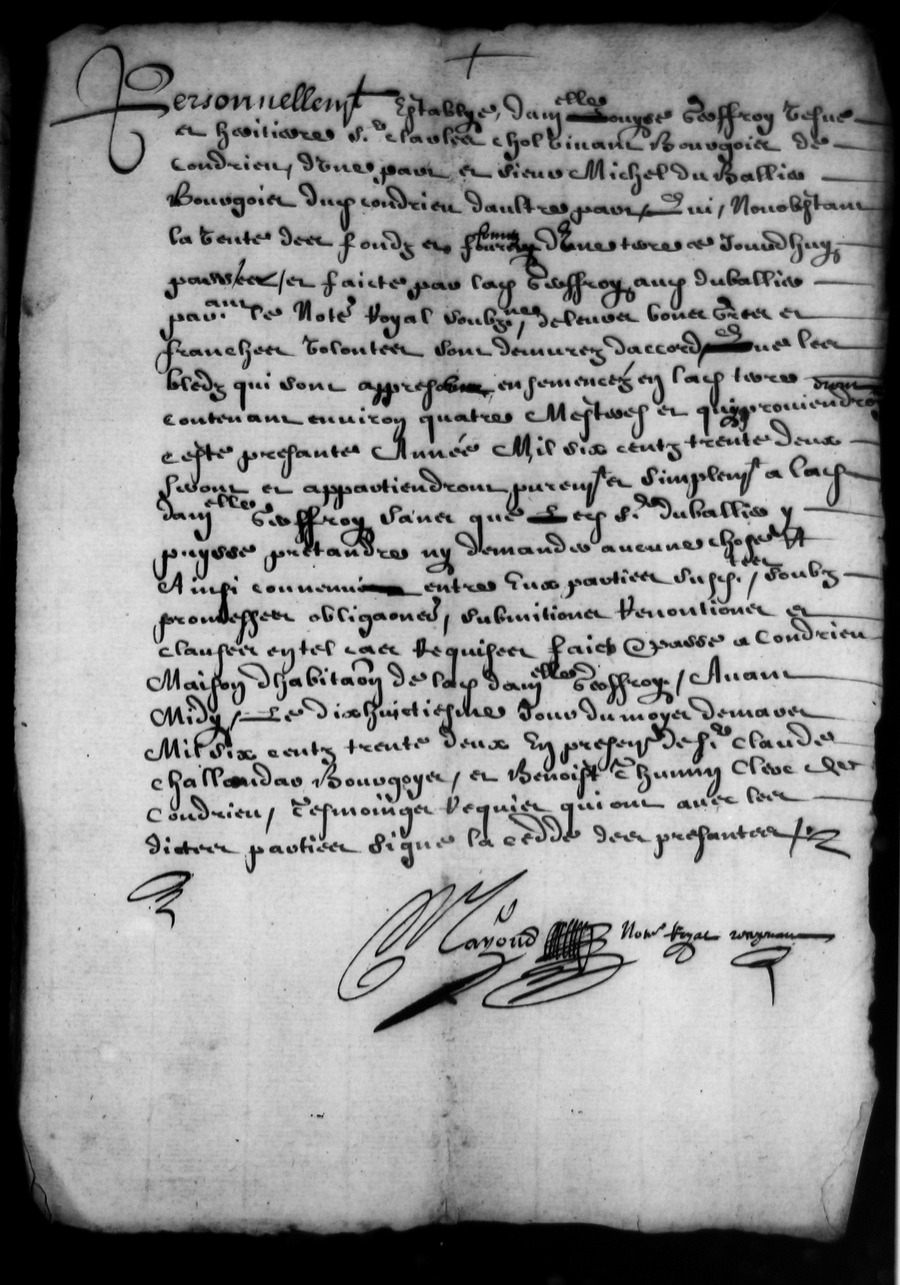 Personnellem^t Establye, dam^elle Louyse Geoffroy vefve
et heritiere S^r Claude Chol vivant Bourgois de
Condrieu, d'une part et sieur Michel du Ballier
Bourgois dud Condrieu daultre part, Qui, Nonobstant
la vente des fondz et d'une terre ce Jourdhuy
passées, et faicte par lad Geoffroy aud duballier
par^ant le Not^e Royal soubz^né, de leurs bones grees et
franches volontes sont demurez daccord, Que les
bledz qui sont a present ensemencés en lad terre
contenant environ quatre Mestres et qui proviendront
ceste presante Année Mil six centz trente deux
seront et appartiendront purem^t et simplem^t a lad
dam^elle Geoffroy sans que Led S^r duballier y
puysse pretandre ny demander aucune chose
Ainsi convenu entre eux parties susd^tes, soubz
promesses obligaones, submitions Renontions et
clauses en tel cas Requises faict & passe a Condrieu
Maison dhabitaon de lad dam^elle Geoffroy, Avant
Midy, Le dixhuictiesme Jour du moys de mars
Mil six centz trente deux En presen^ce de S^r Claude
Challandar Bourgoys, et Benoist Thunny Clerc de
Condrieu, Tesmoinges Requis qui ont avec les
dictes parties signe la cedde des presantes
Mayoud Not^e Royal